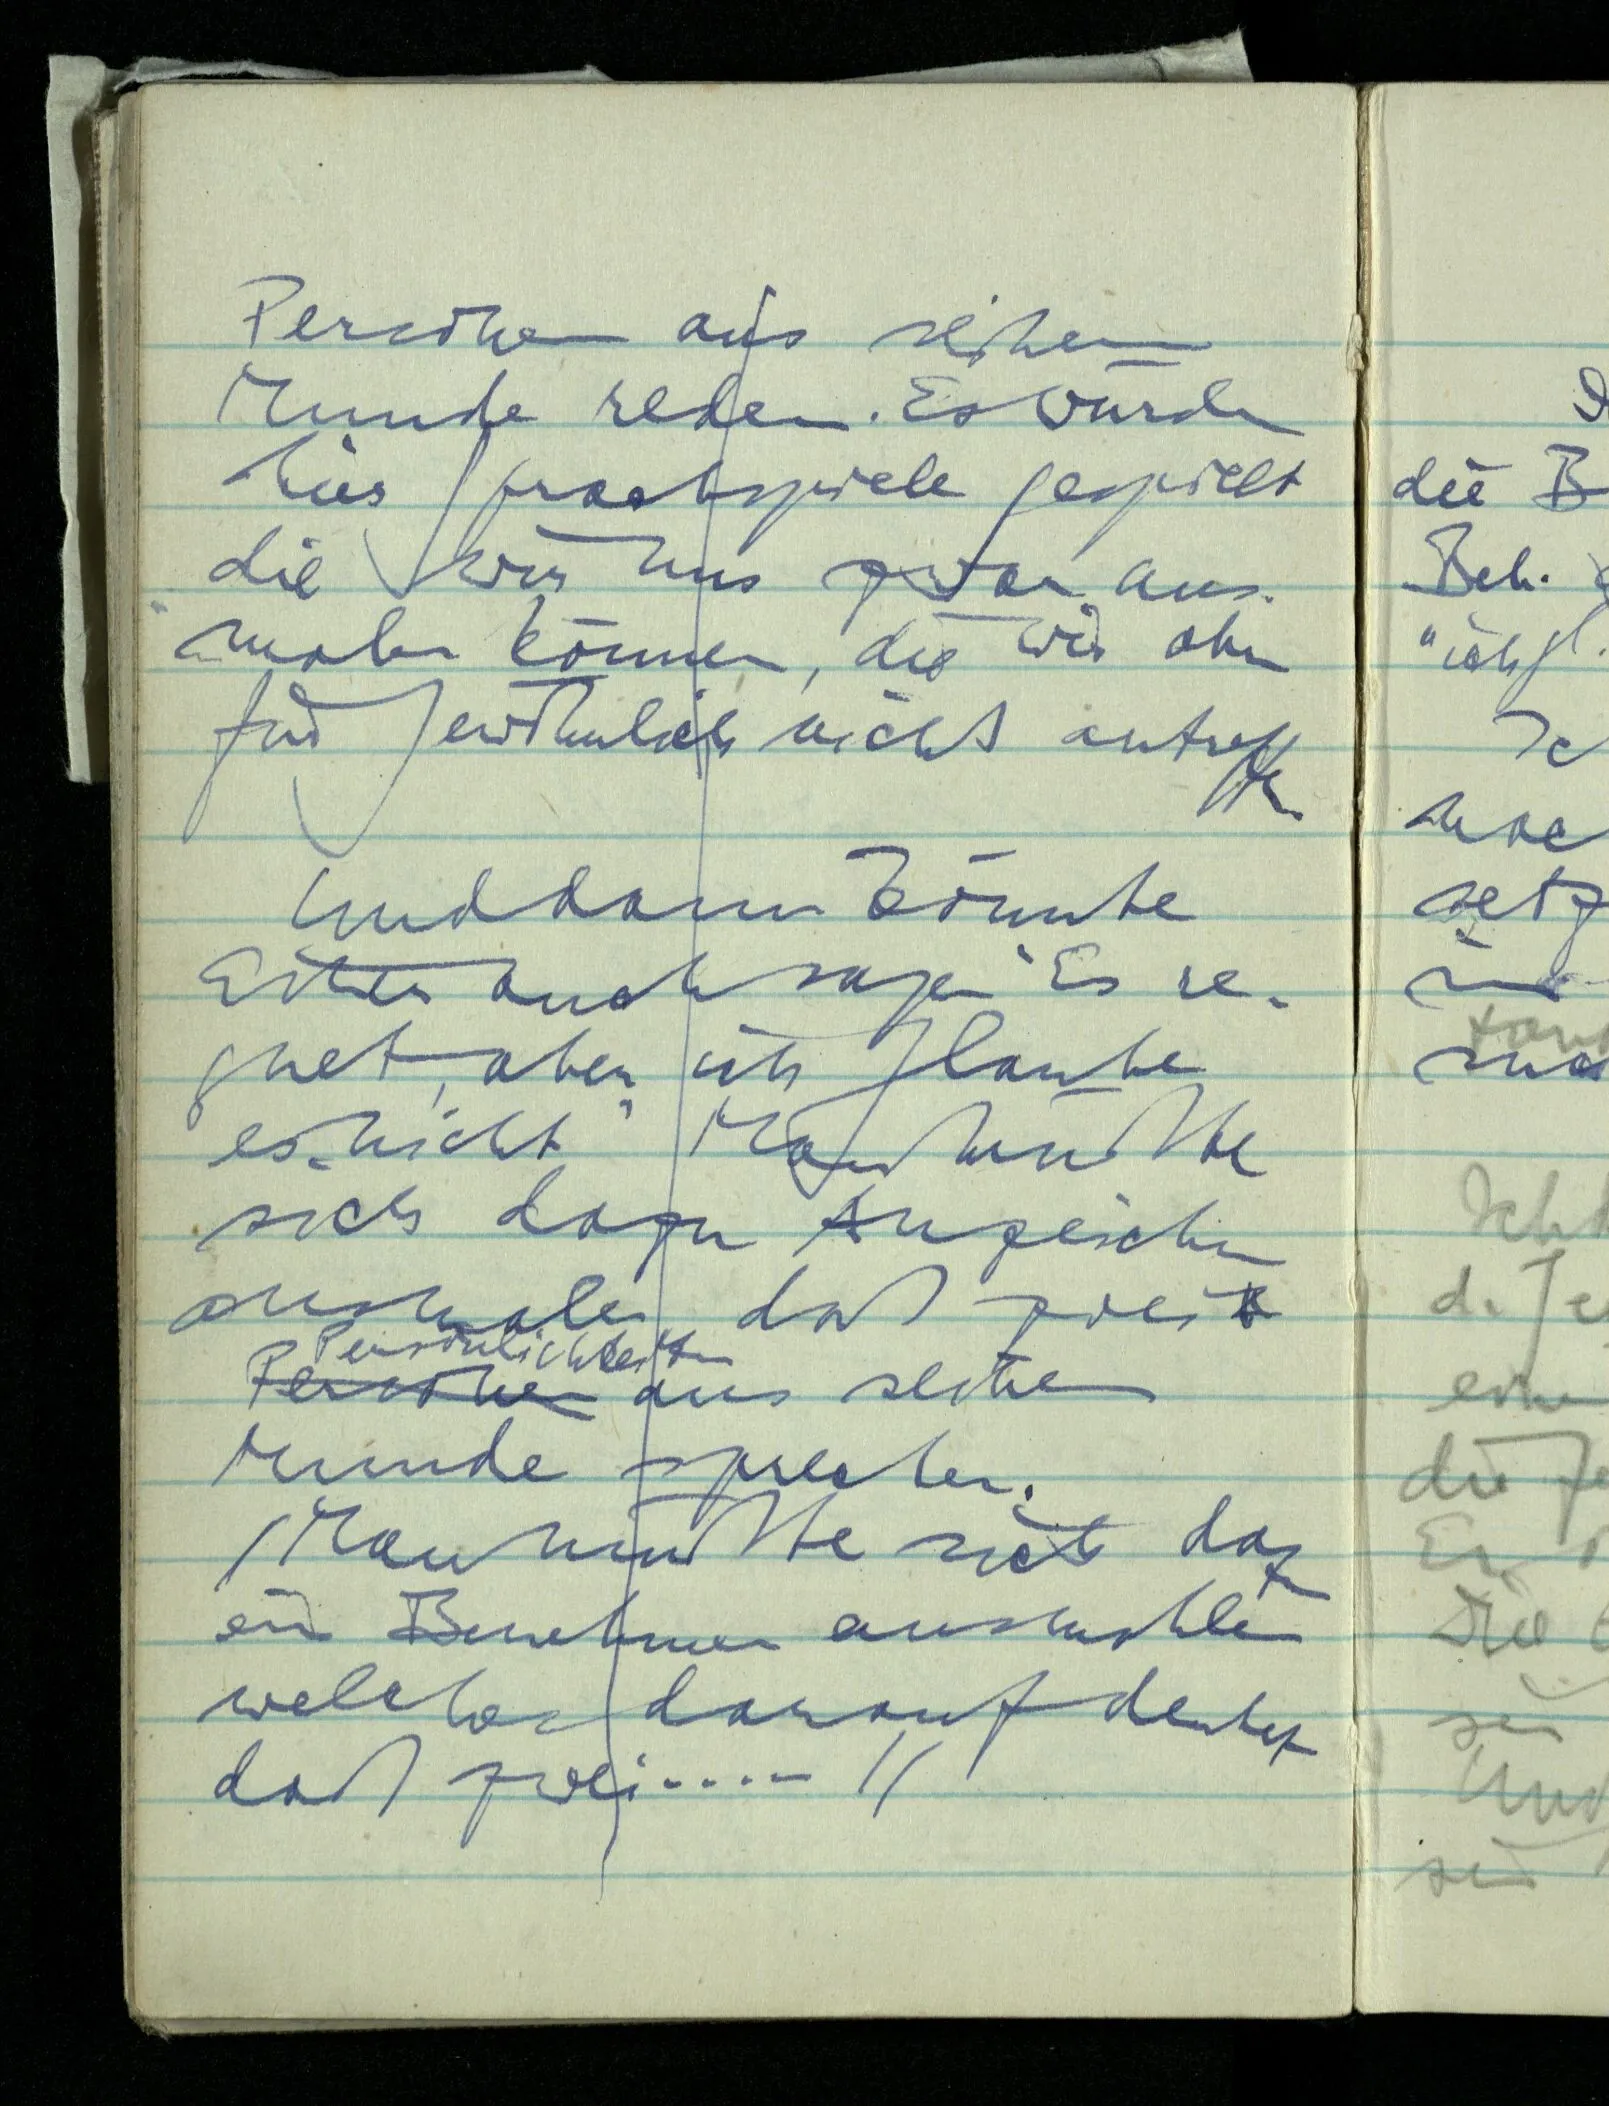 Personen aus seinem
Munde reden. Es würden
hier Sprachspiele gespielt
die wir uns zwar aus-
malen können, die wir aber
für gewöhnlich nicht antreffen
Und dann könnte
Einer auch sagen "Es re-
gnet, aber ich glaube
es nicht" Man müßte
sich dazu Anzeichen
ausmalen daß zwei
Persönlichkeiten
Personen aus seinem
Munde sprechen.
/Man müßte sich dazu
ein Benehmen ausmahlen
welches darauf deutet
daß zwei ..... //
die B
Beh.
"ich